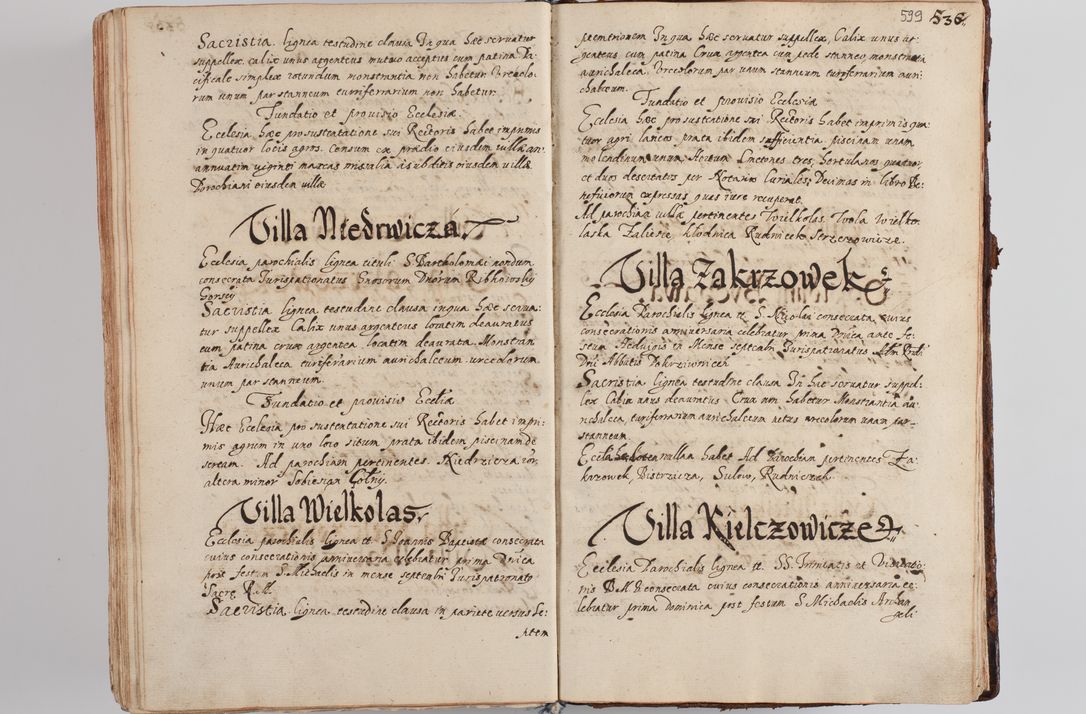 Sacristia. lignea testudine clausa In qua hæc servatur
suppellex calix unus argenteus mutuo acceptus cum patina Pa
cificale simplex rotundum monstrantia non habetur Vrceolo:
rum unum par stanneum turriferrarium non habetur
Fundatio et provisio Ecclesiæ.
Ecclesia hæc pro sustentatione sui Rectoris habet inprimis
in quatuor locis agros. Censum ex prædio eiusdem villæ an:
annuatim viginti marcas missalia a subditis eiusdem villæ
Parochiani eiusdem villæ
Villa Niedrwicza.
Ecclesia parochialis lignea tituli S. Bartholomæi nondum
consecrata Jurispatronatus Gnosorum Dnorum
Gorscy
Sacristia lignea testudine clausa in qua hæc serua:
tur suppellex Calix unus argenteus locatim deauratus
cum patina crux argentea locatim deaurata Monstran
tia Aurichalcea turiferarium aurichalceum urceolorum
unum par stanneum.
Fundatio et provisio Eccliæ
Hæc Ecclesia pro sustentatione sui Rectoris habet inpri:
mis agrum in uno loco situm prata ibidem piscinam de
sertam. Ad parochiam pertinentes Niedrzicza
altera minor Sobieszan
Villa Wielkolas.
Ecclesia parochialis lignea tt. S Joannis Baptistæ consecrata
cuius consecrationis anniversaria celebratur prima Dnica
post festum S. Michaelis in mense septembri Jurispatronatus
Sacræ R. M.
Sacristia lignea testudine clausa in pariete versus Se:
ptem
599 536
ptemtrionem In qua hæc servatur suppellex, Calix unus ar:
genteus cum patina Crux argentea cum pede stanneo, monstrantia
aurichalcea. Vrceolorum par unum stanneum turiferrarium auri
chalceum.
Fundatio et provisio Ecclesiæ
Ecclesia hæc pro sustentatione sui Rectoris habet inprimis qua:
tuor agri laneos prata ibidem sufficientia piscinam unam
molendinum unum Hortum Lnctones tres, hortulanos quatuor
et duos desertatos per Notarios Curiales Decimas in libro Be:
neficiorum expressas quas iure recuperat.
Ad parochiam villæ pertinentes Wielkolas, Wola Wielko
laska Zalesie, Kłodnica Rudniczek Serzczowicze.
Villa Zakrzowek
Ecclesia Parochialis lignea tt. S. Nicolai consecrata, cuius
consecrationis anniversaria celebratur prima Dnica ante fe:
stum Hedwigis in Mense septembri Jurispatronatus
Dni Abbatis
Sacristia lignea testudine clausa In hic servatur suppel:
lex Calix unus deauratus Crux non habetur Monstrantia au:
richalcea, turiferrarium aurichalceum vetus urceolorum unum par
stanneum.
Ecclia hæc nullam habet Ad Parochiam pertinentes Za:
krzowek Bistrzicza, Sulow, Rudniczek.
Villa Kielczowicze
Ecclesia Parochialis lignea tt. SS. Trinitatis et Visitatio:
nis B. M. V. consecrata cuius consecrationis anniversaria ce:
lebratur prima dominica post festum S Michaelis Archan
geli